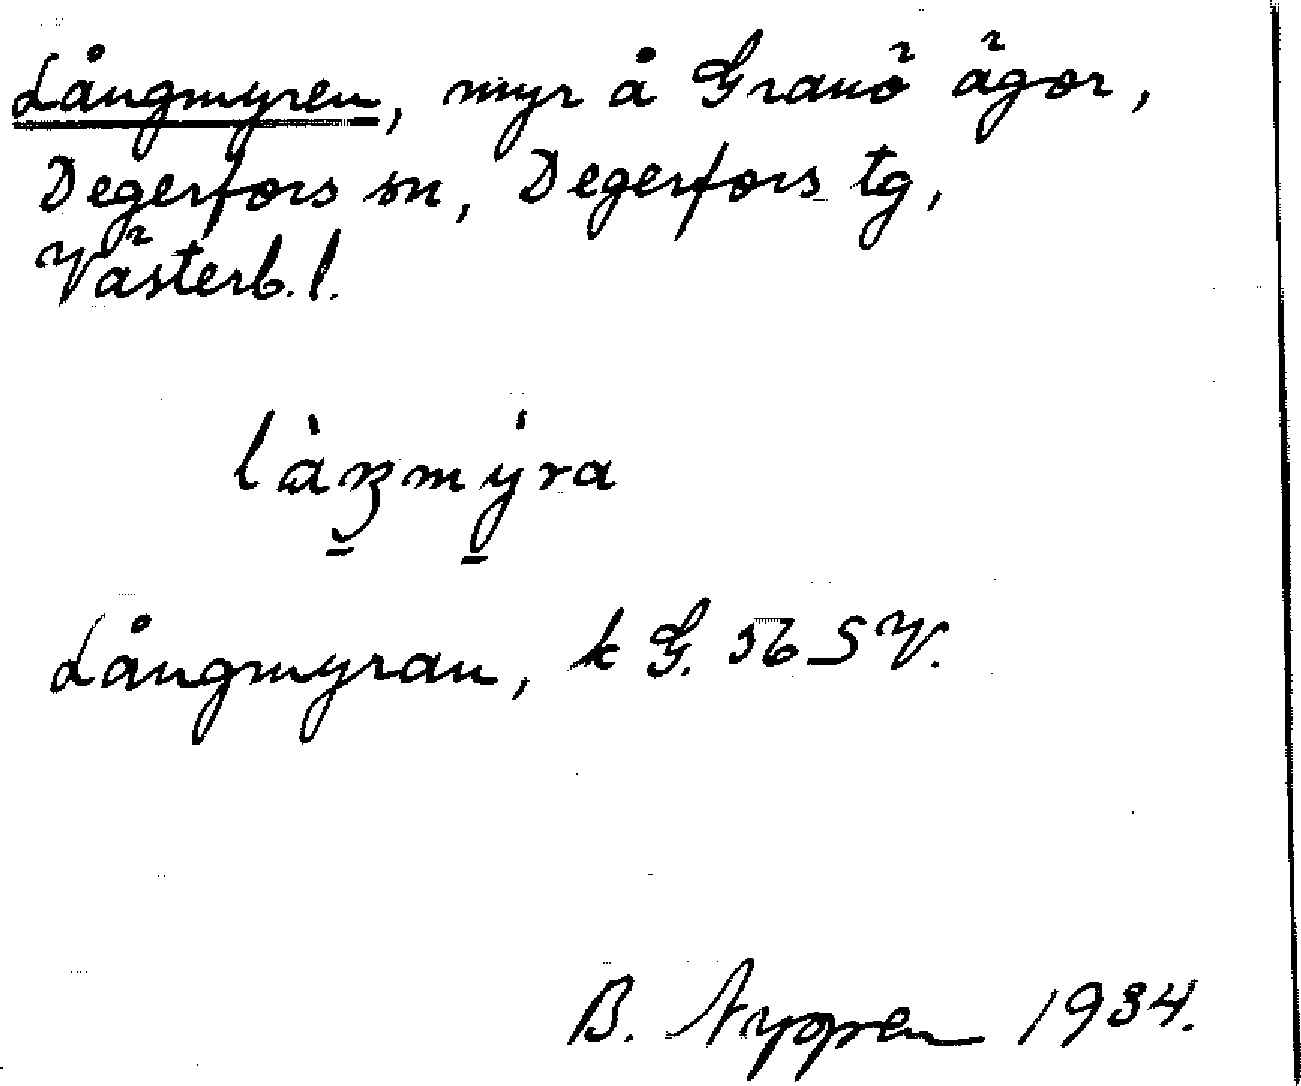 Långmyren, myr å Granö ägor,
Degerfors sn, Degerfors tg,
Västerb. l.
làŋmýra
Långmyran, k G. 56 SV.
B. 1934.